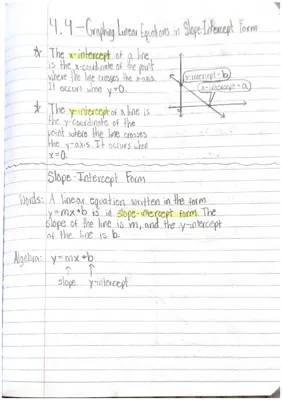 4.4 - Graphing Linear Equations in Slope-Intercept Form
* The x-intercept of a line,
is the x-coordinate of the point
where the line crosses the x-axis.
It occurs when y=0.
y-intercept = b
x-intercept = a
* The y-intercept of a line is
the y-coordinate of the
point where the line crosses
the y-axis. It occurs when
x=0.
Slope-Intercept Form
Words: A linear equation written in the form
y=mx+b is in slope-intercept form. The
slope of the line is m, and the y-intercept
of the line is b.
Algebra: y=mx+b
slope y-intercept